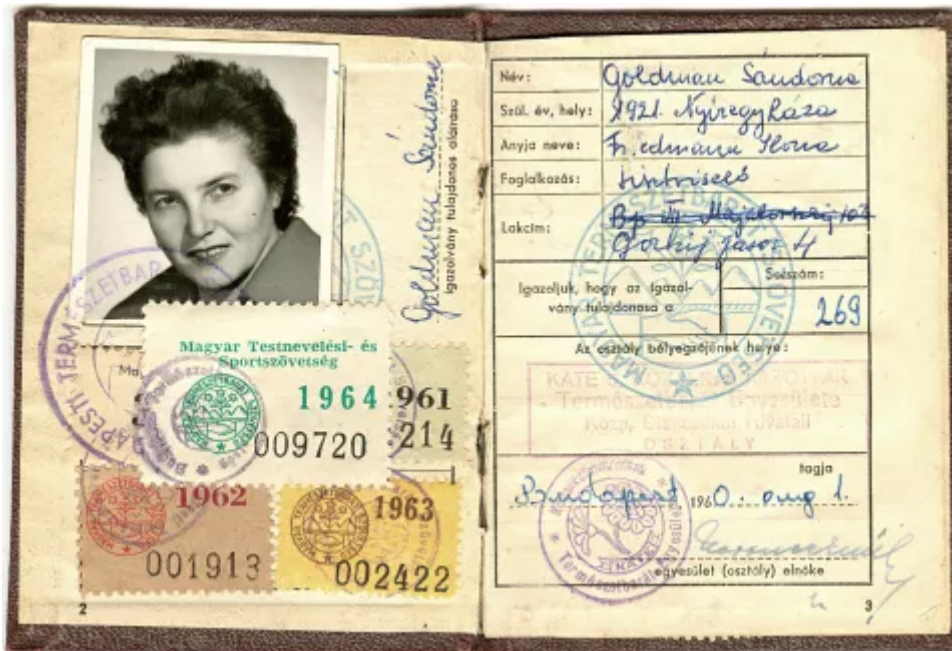 Goldman Sándorné
Igazolvány tulajdonos aláírása
Magyar Testnevelési- és
Sportszövetség
1964
009720
961
214
1962
001913
1963
002422
2
Név: Goldman Sándorné
Szül. év, hely: 1921. Nyíregyháza
Anyja neve: Friedmann Ilona
Foglalkozás: tisztviselő
Lakcím: Bp
Gorkij fasor 4
Igazoljuk, hogy az igazol-
vány tulajdonosa a
Sorszám:
269
Az osztály bélyegzőjének helye:
OSZTÁLY
tagja
Budapest 1960. aug 1.
egyesület (osztály) elnöke
3